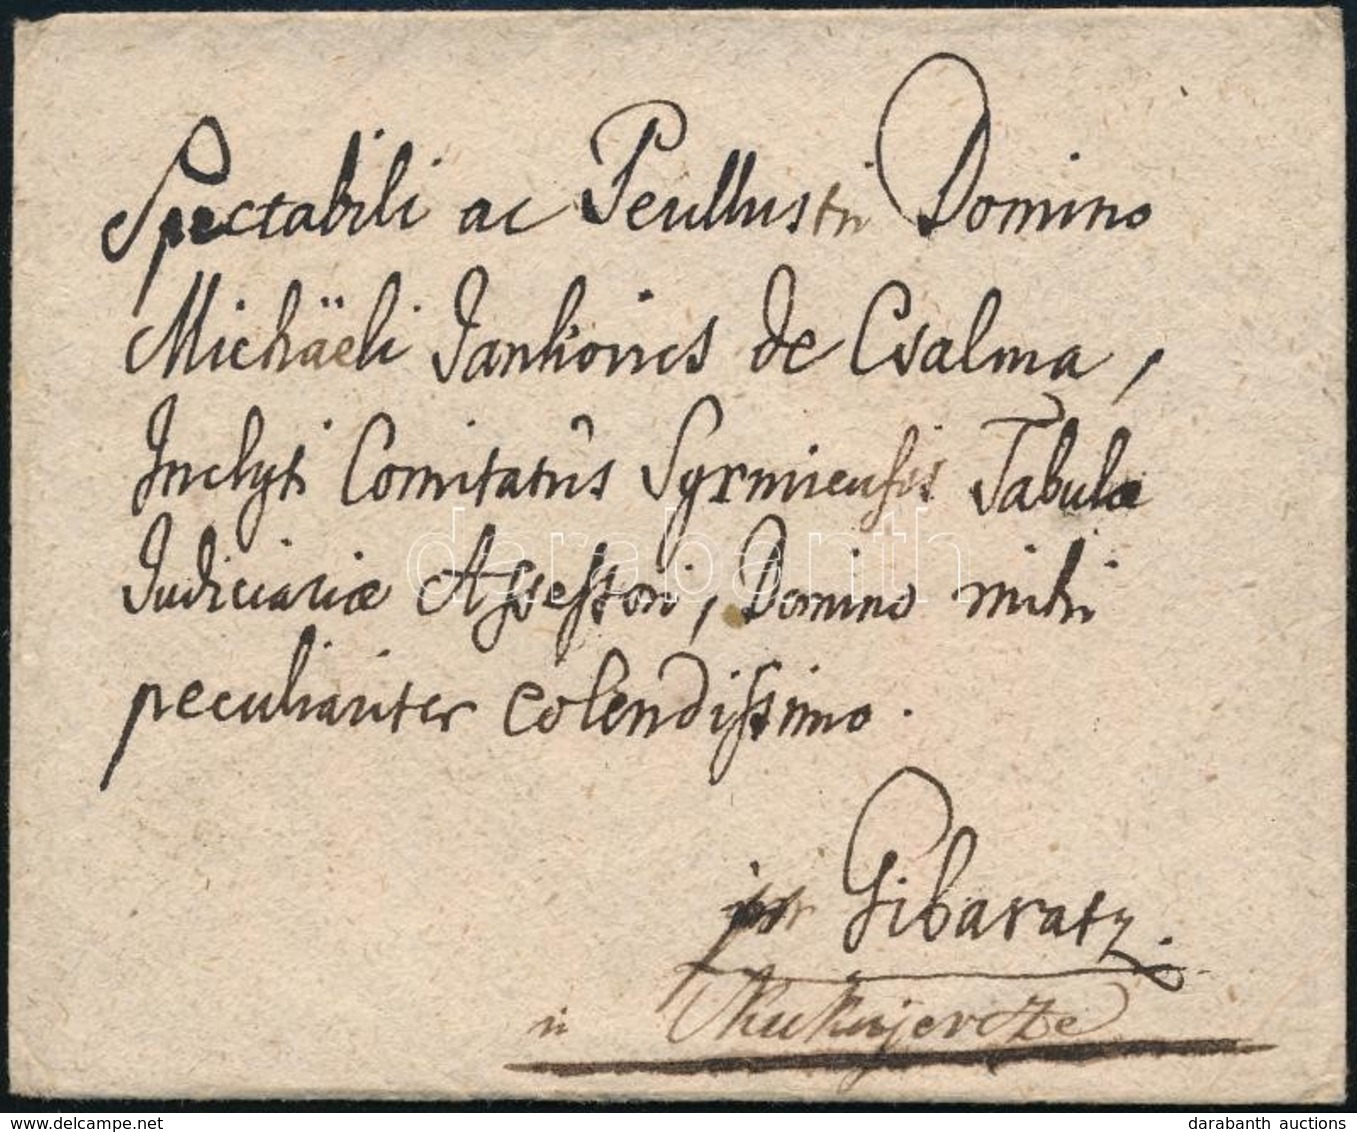 Spectabili ac Perillustri Domino
Michäeli Jankovics de Csalma,
Inclyti Comitatûs Syrmiensis Tabulæ
Judiciariæ Assessori, Domino mihi
peculiariter colendissimo.
per Gibaratz.
in Kukujevcze
darabanth
darabanth auctions